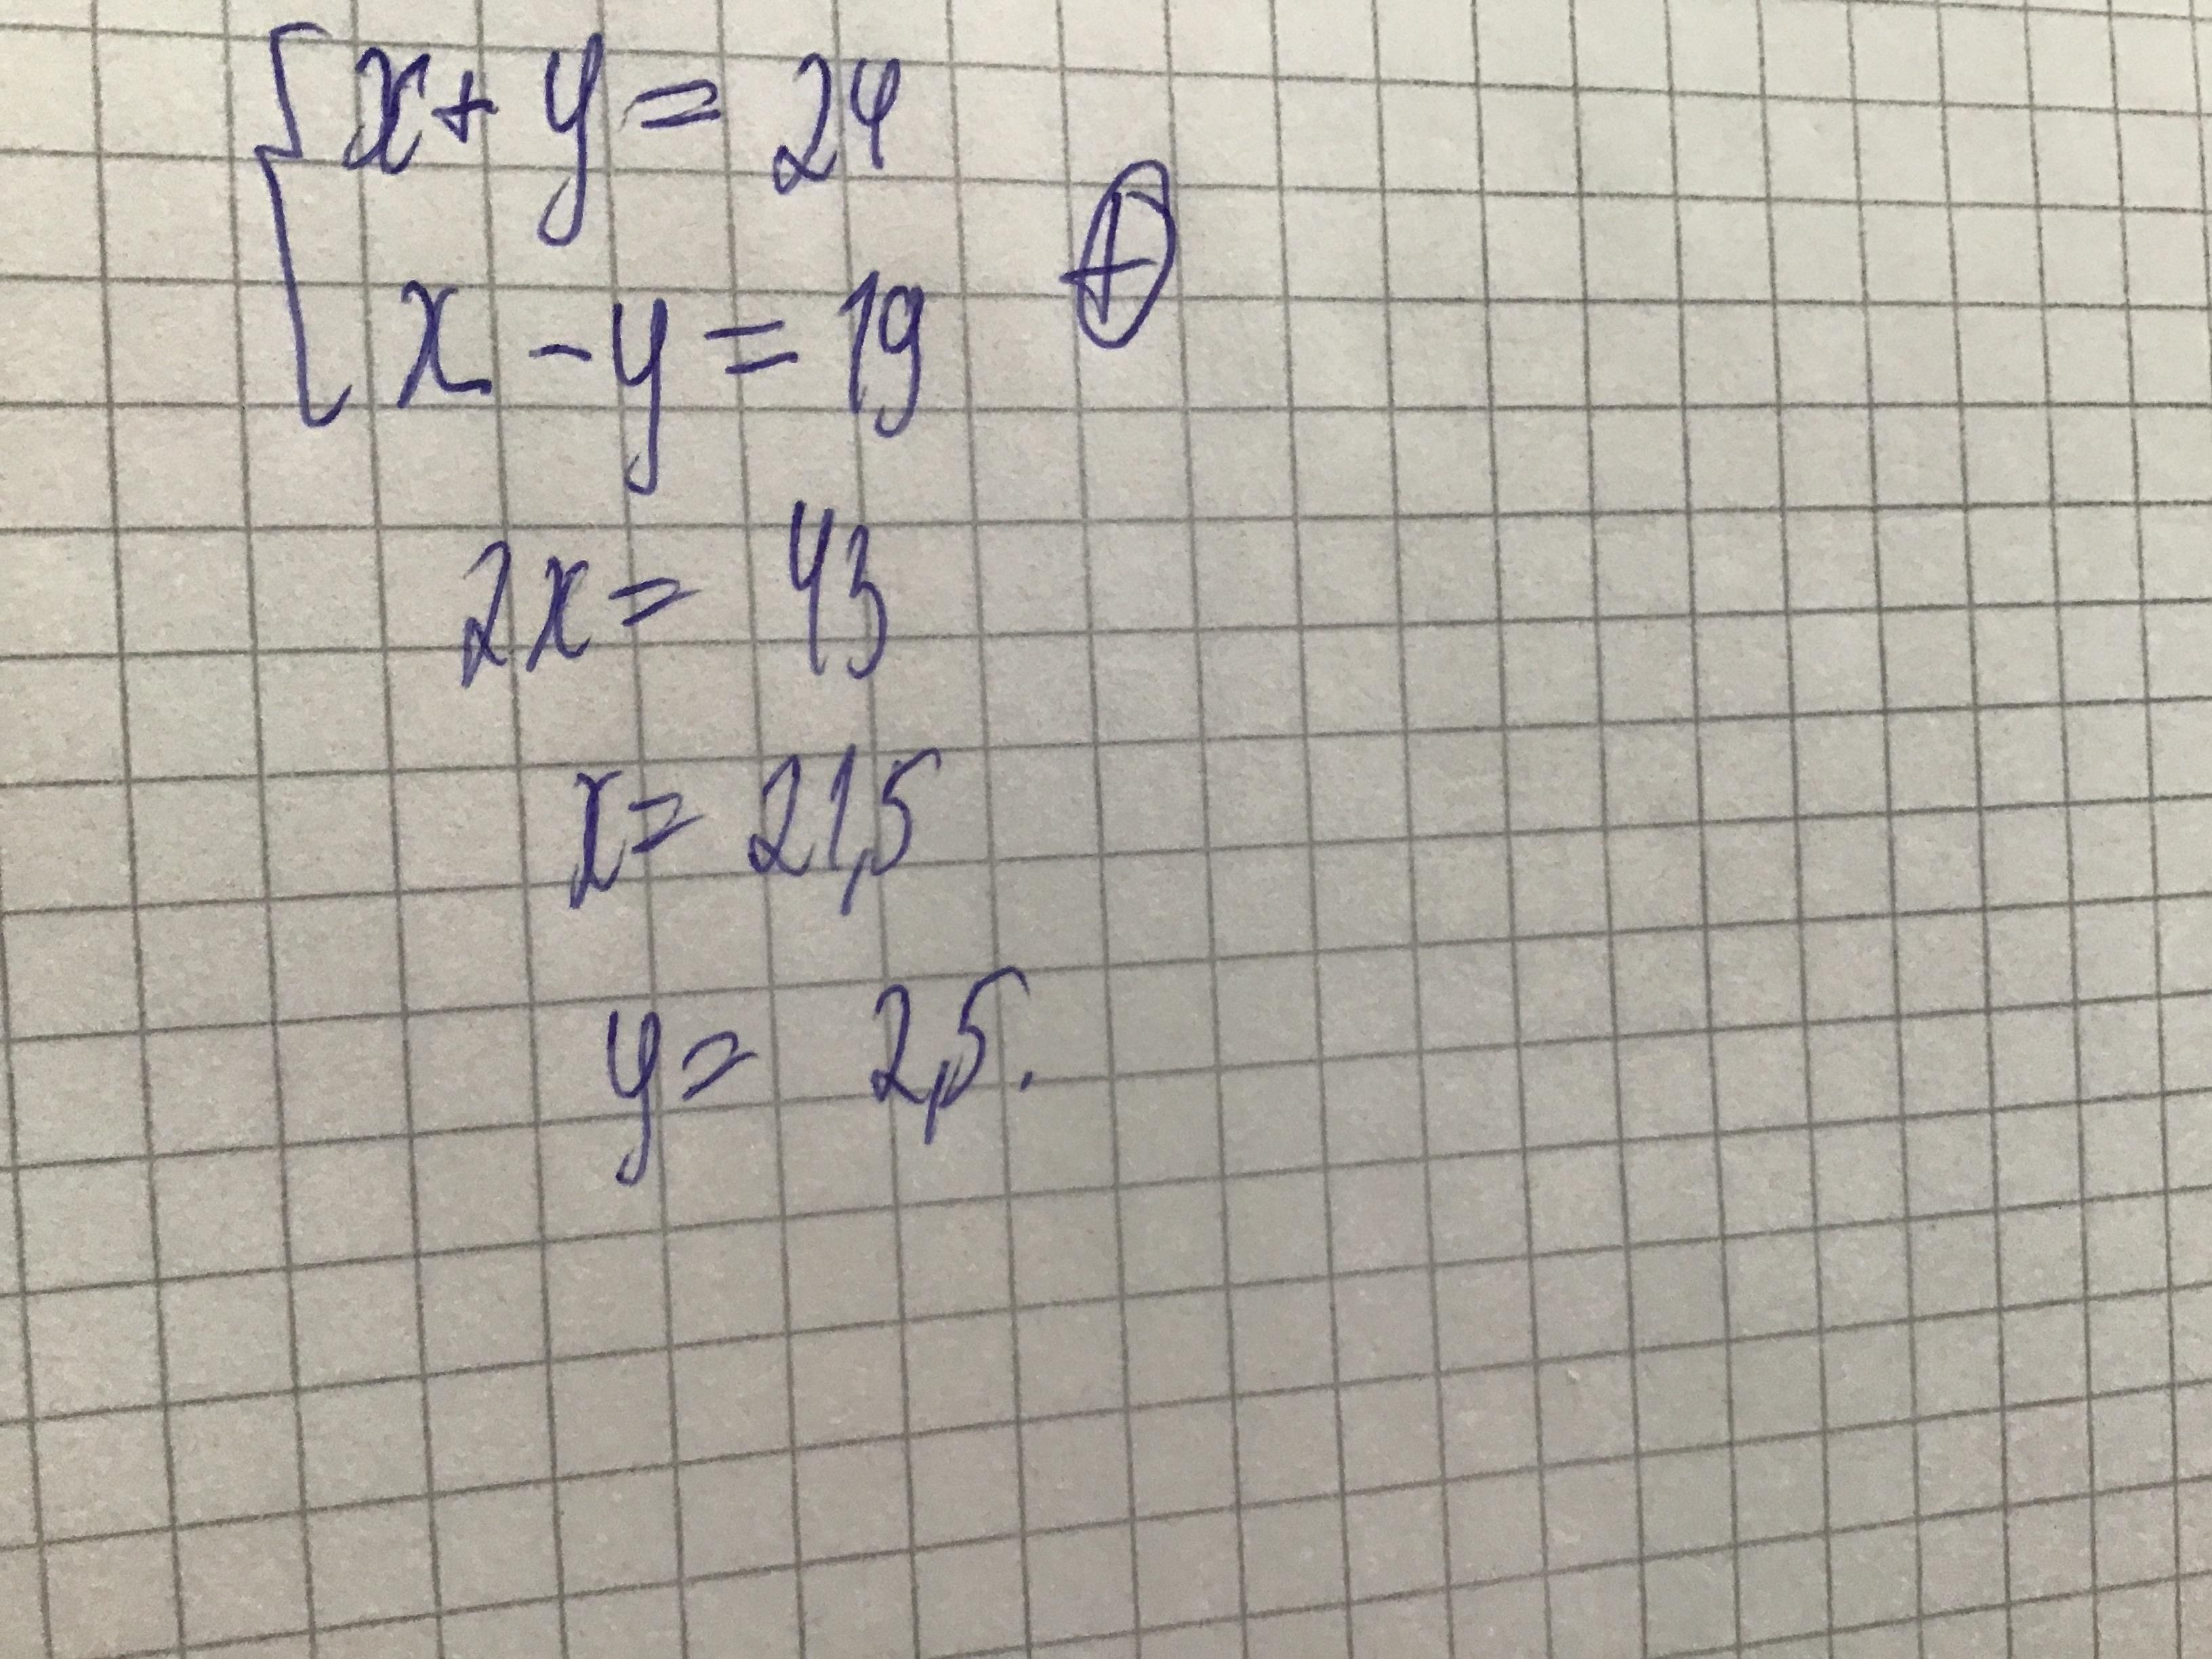 { x + y = 24
x - y = 19 ⊕
2x = 43
x = 21,5
y = 2,5.